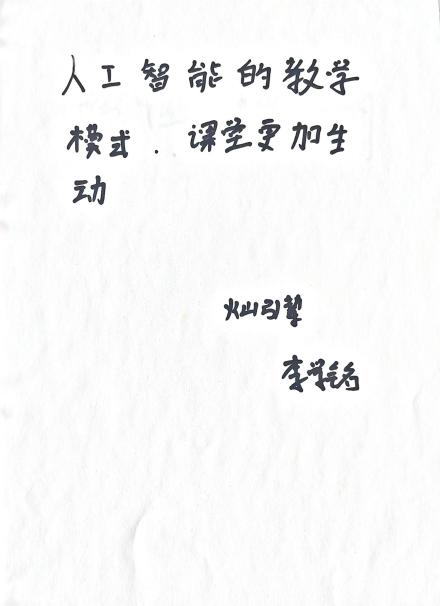 人工智能的教学
模式.课堂更加生
动
灿引擎
李学铭